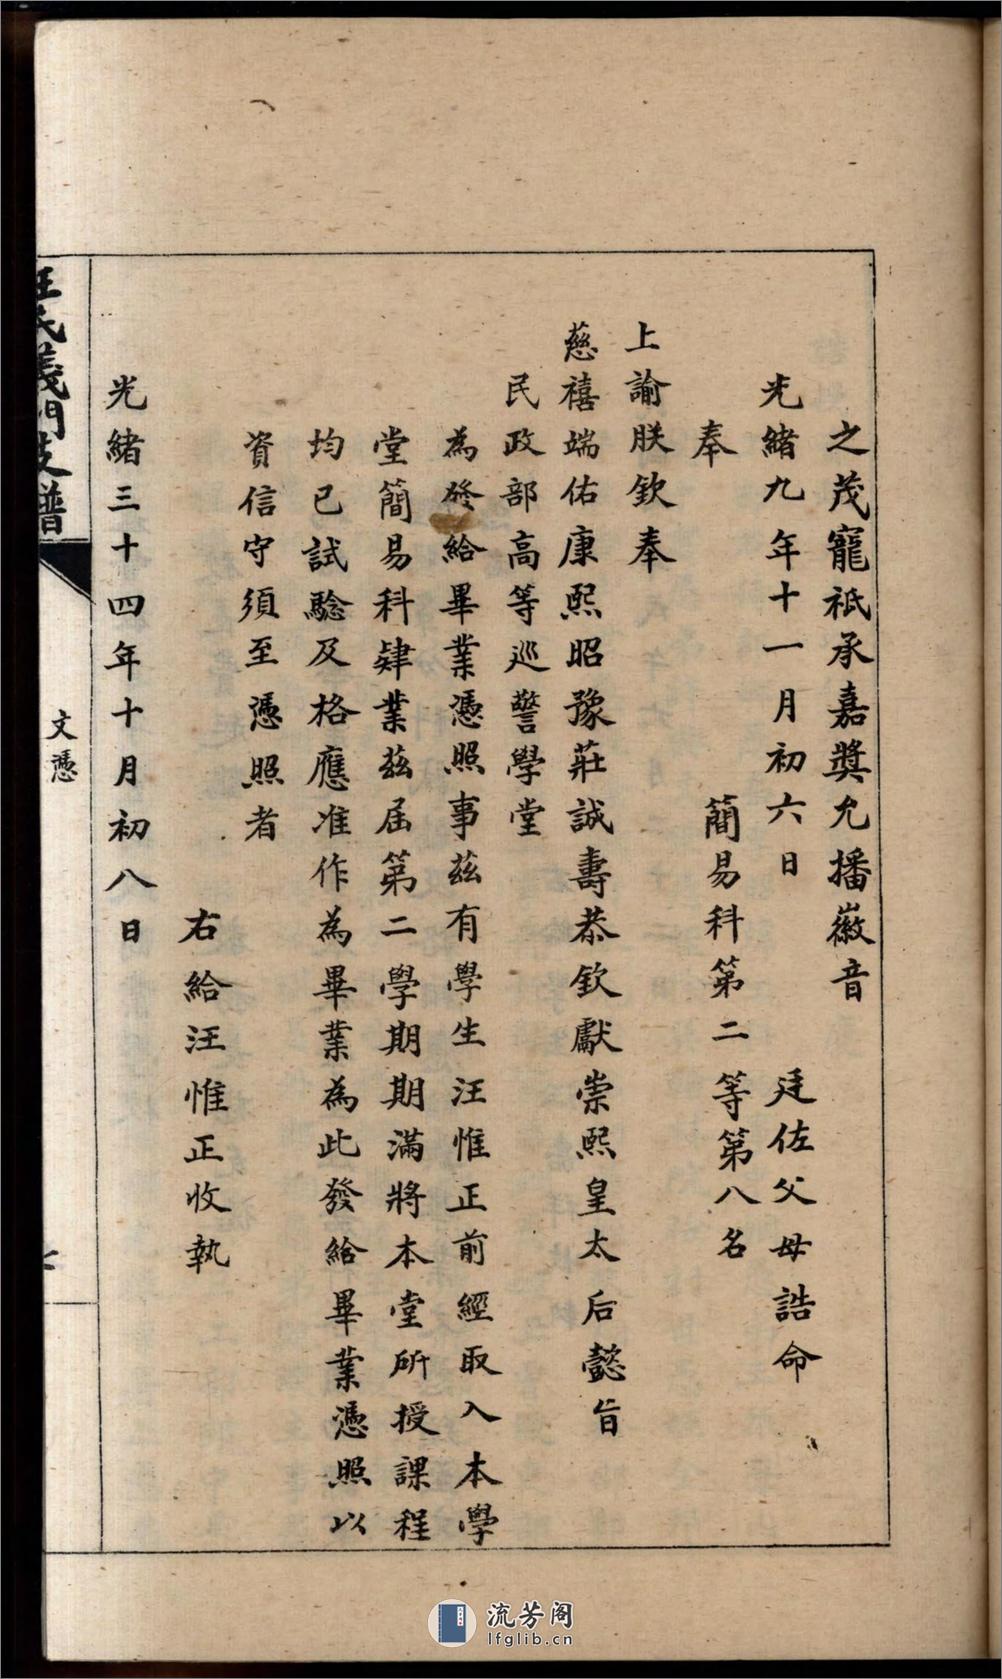 之茂寵祗承嘉奬允播徽音
光緒九年十一月初六日　廷佐父母誥命
奉　簡易科第二等第八名
上諭朕欽奉
慈禧端佑康熙昭豫莊誠壽恭欽獻崇熙皇太后懿旨
民政部高等巡警學堂
為發給畢業憑照事茲有學生汪惟正前經取入本學
堂簡易科肄業茲屆第二學期期滿將本堂所授課程
均已試驗及格應准作為畢業為此發給畢業憑照以
資信守須至憑照者
右給汪惟正收執
光緒三十四年十月初八日
汪氏義門支譜
文憑
流芳阁
lfglib.cn